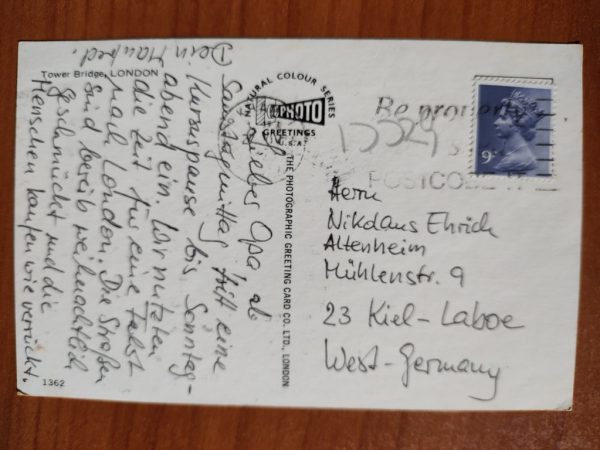 Tower Bridge, LONDON
Lieber Opa ab
Samstagmittag tritt eine
Kursuspause bis Sonntag-
abend ein. Wir nutzten
die Zeit für eine Fahrt
nach London. Die Straßen
sind bereits weihnachtlich
geschmückt und die
Menschen kaufen wie verrückt.
Dein Manfred.
1362
NATURAL COLOUR SERIES
PHOTO
GREETINGS
THE PHOTOGRAPHIC GREETING CARD CO. LTD., LONDON
Be properly
POSTCODE
9
Herrn
Nikolaus Ehrich
Altenheim
Mühlenstr. 9
23 Kiel-Laboe
West-Germany